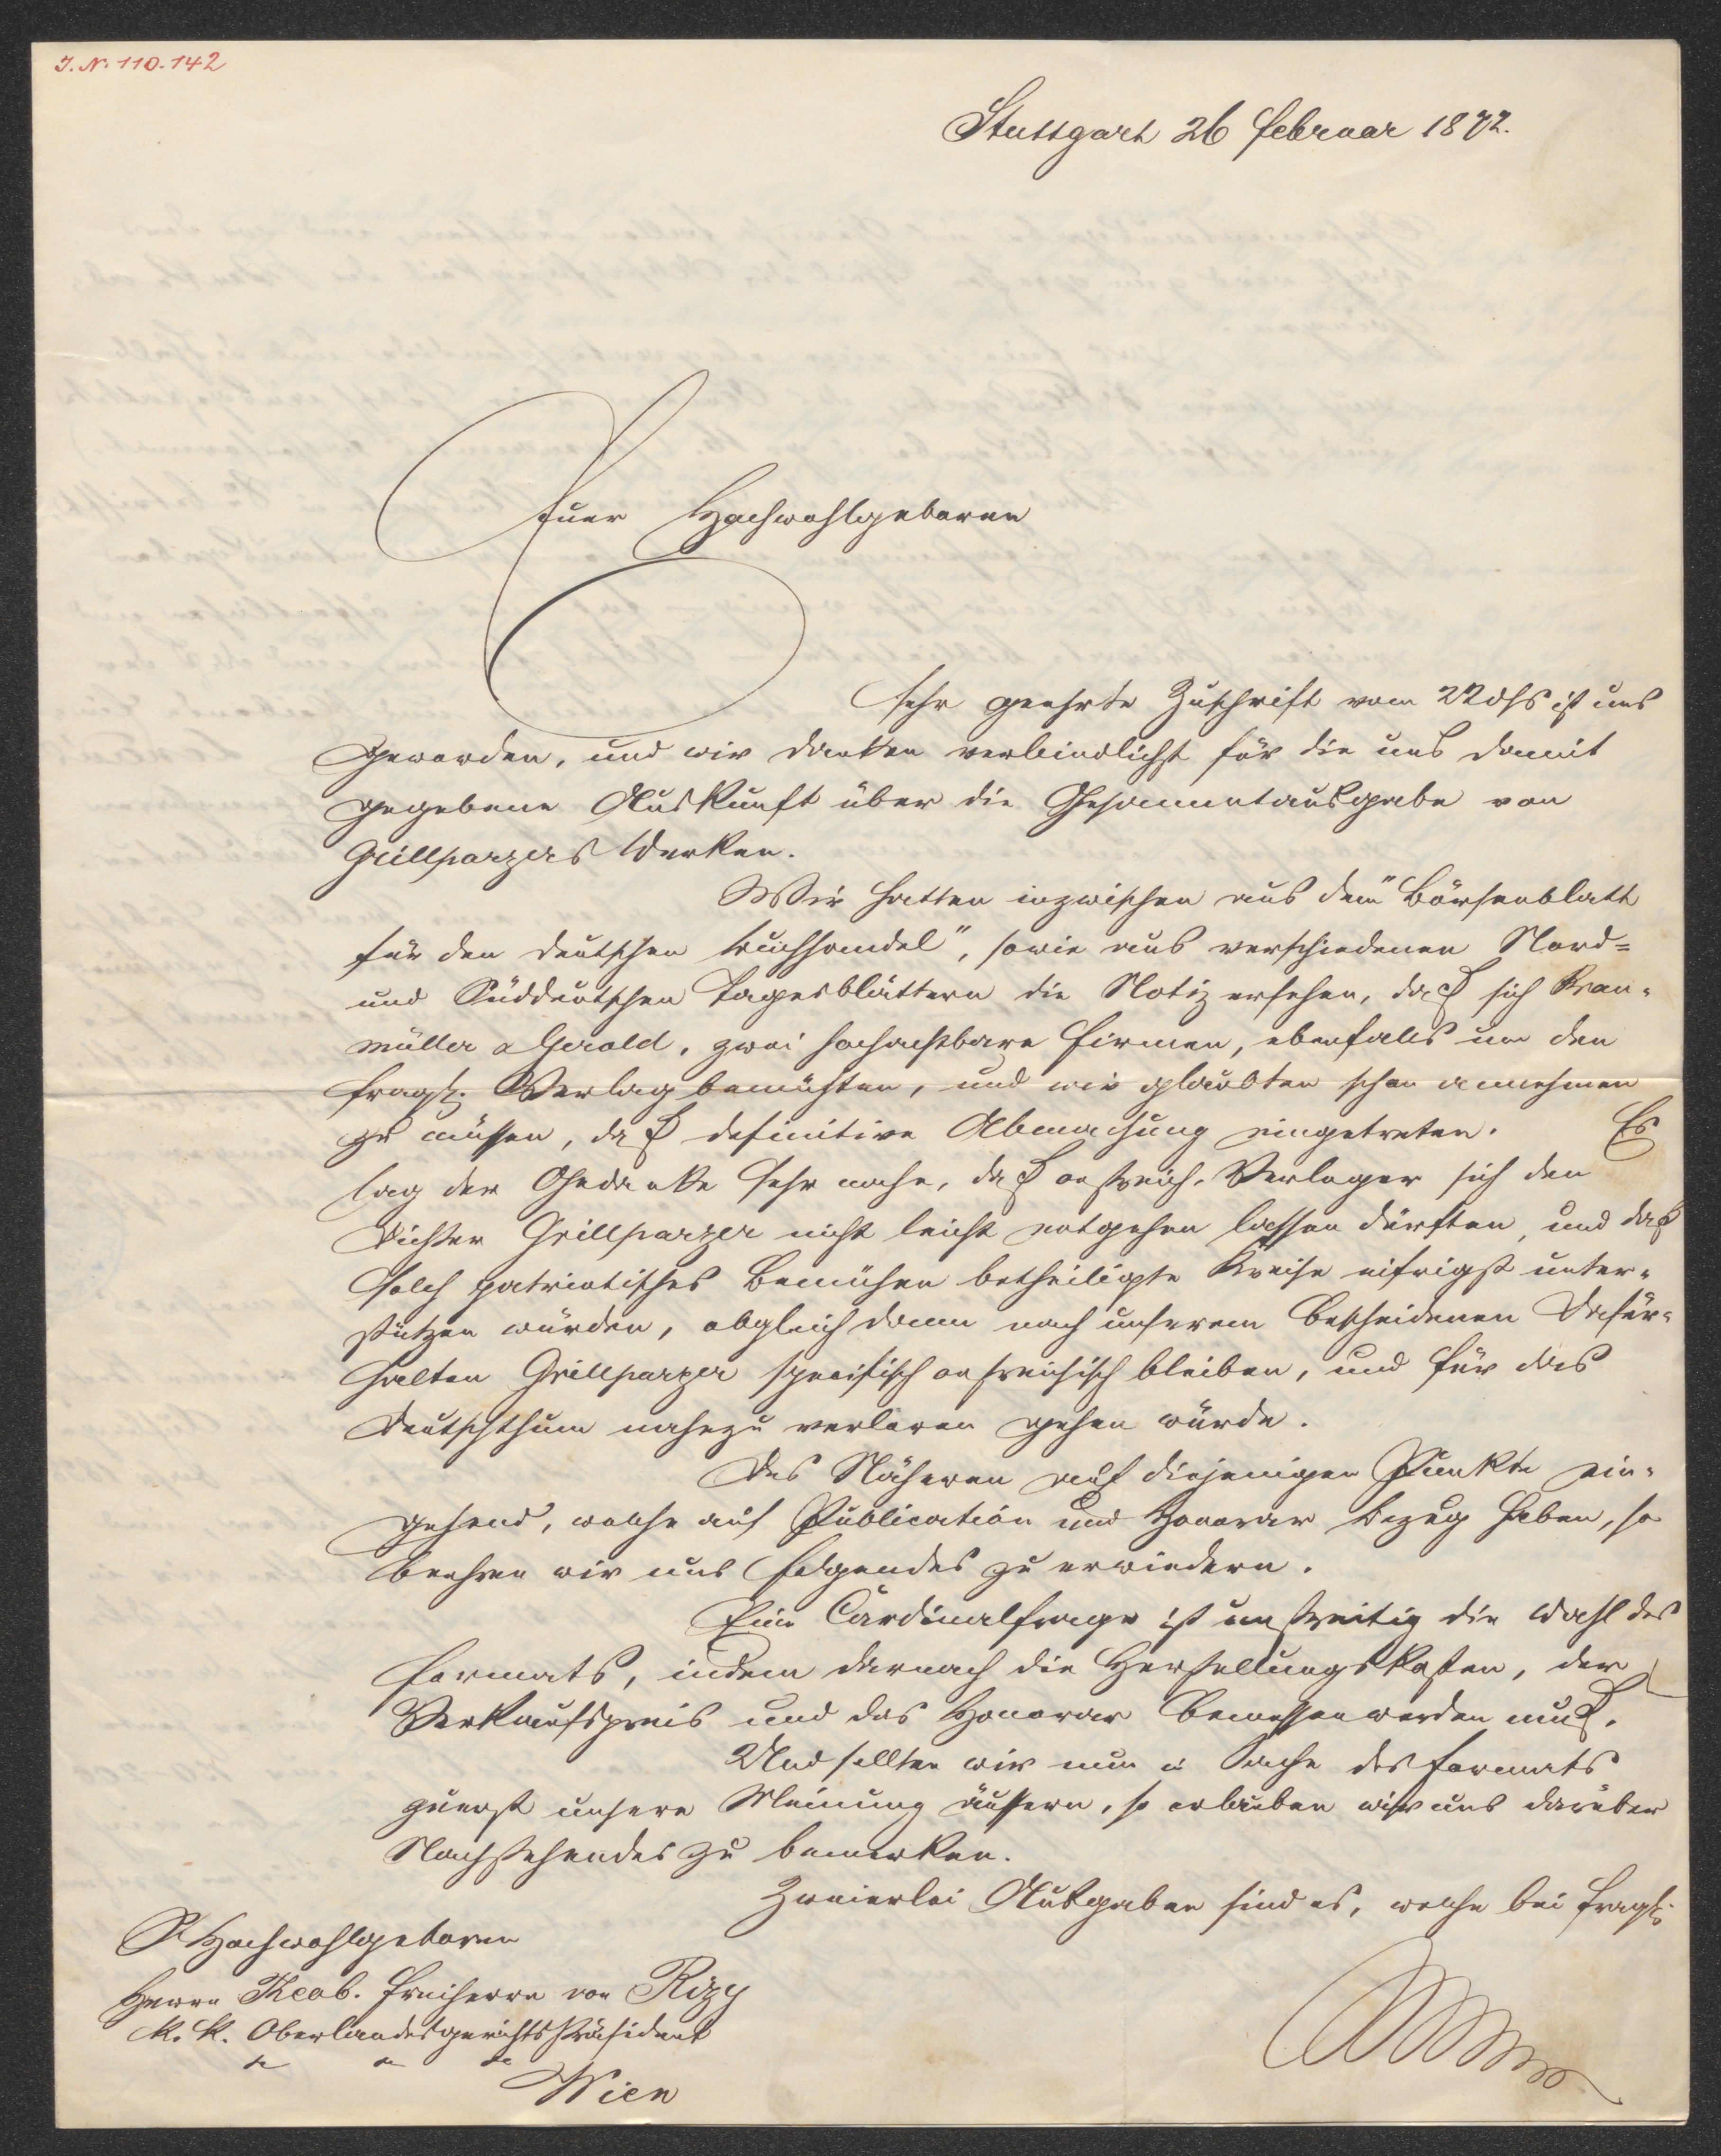 I. N. 110.142
Stuttgart 26 Februar 1872.
Euer Hochwohlgeboren
sehr geehrte Zuschrift vom 22 dss ist uns
geworden, und wir danken verbindlichst für die uns damit
gegebene Auskunft über die Gesammtausgabe von
Grillparzers Werken.
Wir hatten inzwischen aus dem "Börsenblatt
für den deutschen Buchhandel", sowie aus verschiedenen Nord=
und Süddeutschen Tagesblättern die Notiz ersehen, daß sich Brau-
müller & Gerold, zwei hochachtbare Firmen, ebenfalls um den
fragl. Verlag bemühten, und wir glaubten schon annehmen
zu müssen, daß definitive Abmachung eingetreten. Es
lag der Gedanke sehr nahe, daß oestreich. Verleger sich den
Dichter Grillparzer nicht leicht entgehen lassen dürften, und daß
solch patriotisches Bemühen betheiligte Kreise eifrigst unter-
stützen würden, obgleich dann nach unserem bescheidenen Dafür-
halten Grillparzer specifisch oestreichisch bleiben, und für das
Deutschthum nahezu verloren gehen würde.
Des Näheren auf diejenigen Punkte ein-
gehend, welche auf Publication und Honorar Bezug haben, so
beehren wir uns Folgendes zu erwiedern.
Eine Cardinalfrage ist unstreitig die Wahl des
Formats, indem darnach die Herstellungskosten, der
Verkaufspreis und das Honorar bemessen werden muß.
Und sollten wir nun in Sache des Formats
zuerst unsere Meinung äussern, so erlauben wir uns darüber
Nachstehendes zu bemerken.
Zweierlei Ausgaben sind es, welche bei fragl.
Sr Hochwohlgeboren
Herrn Theob. Freiherrn von Rizy
k. k. Oberlandesgerichts Präsident
Wien